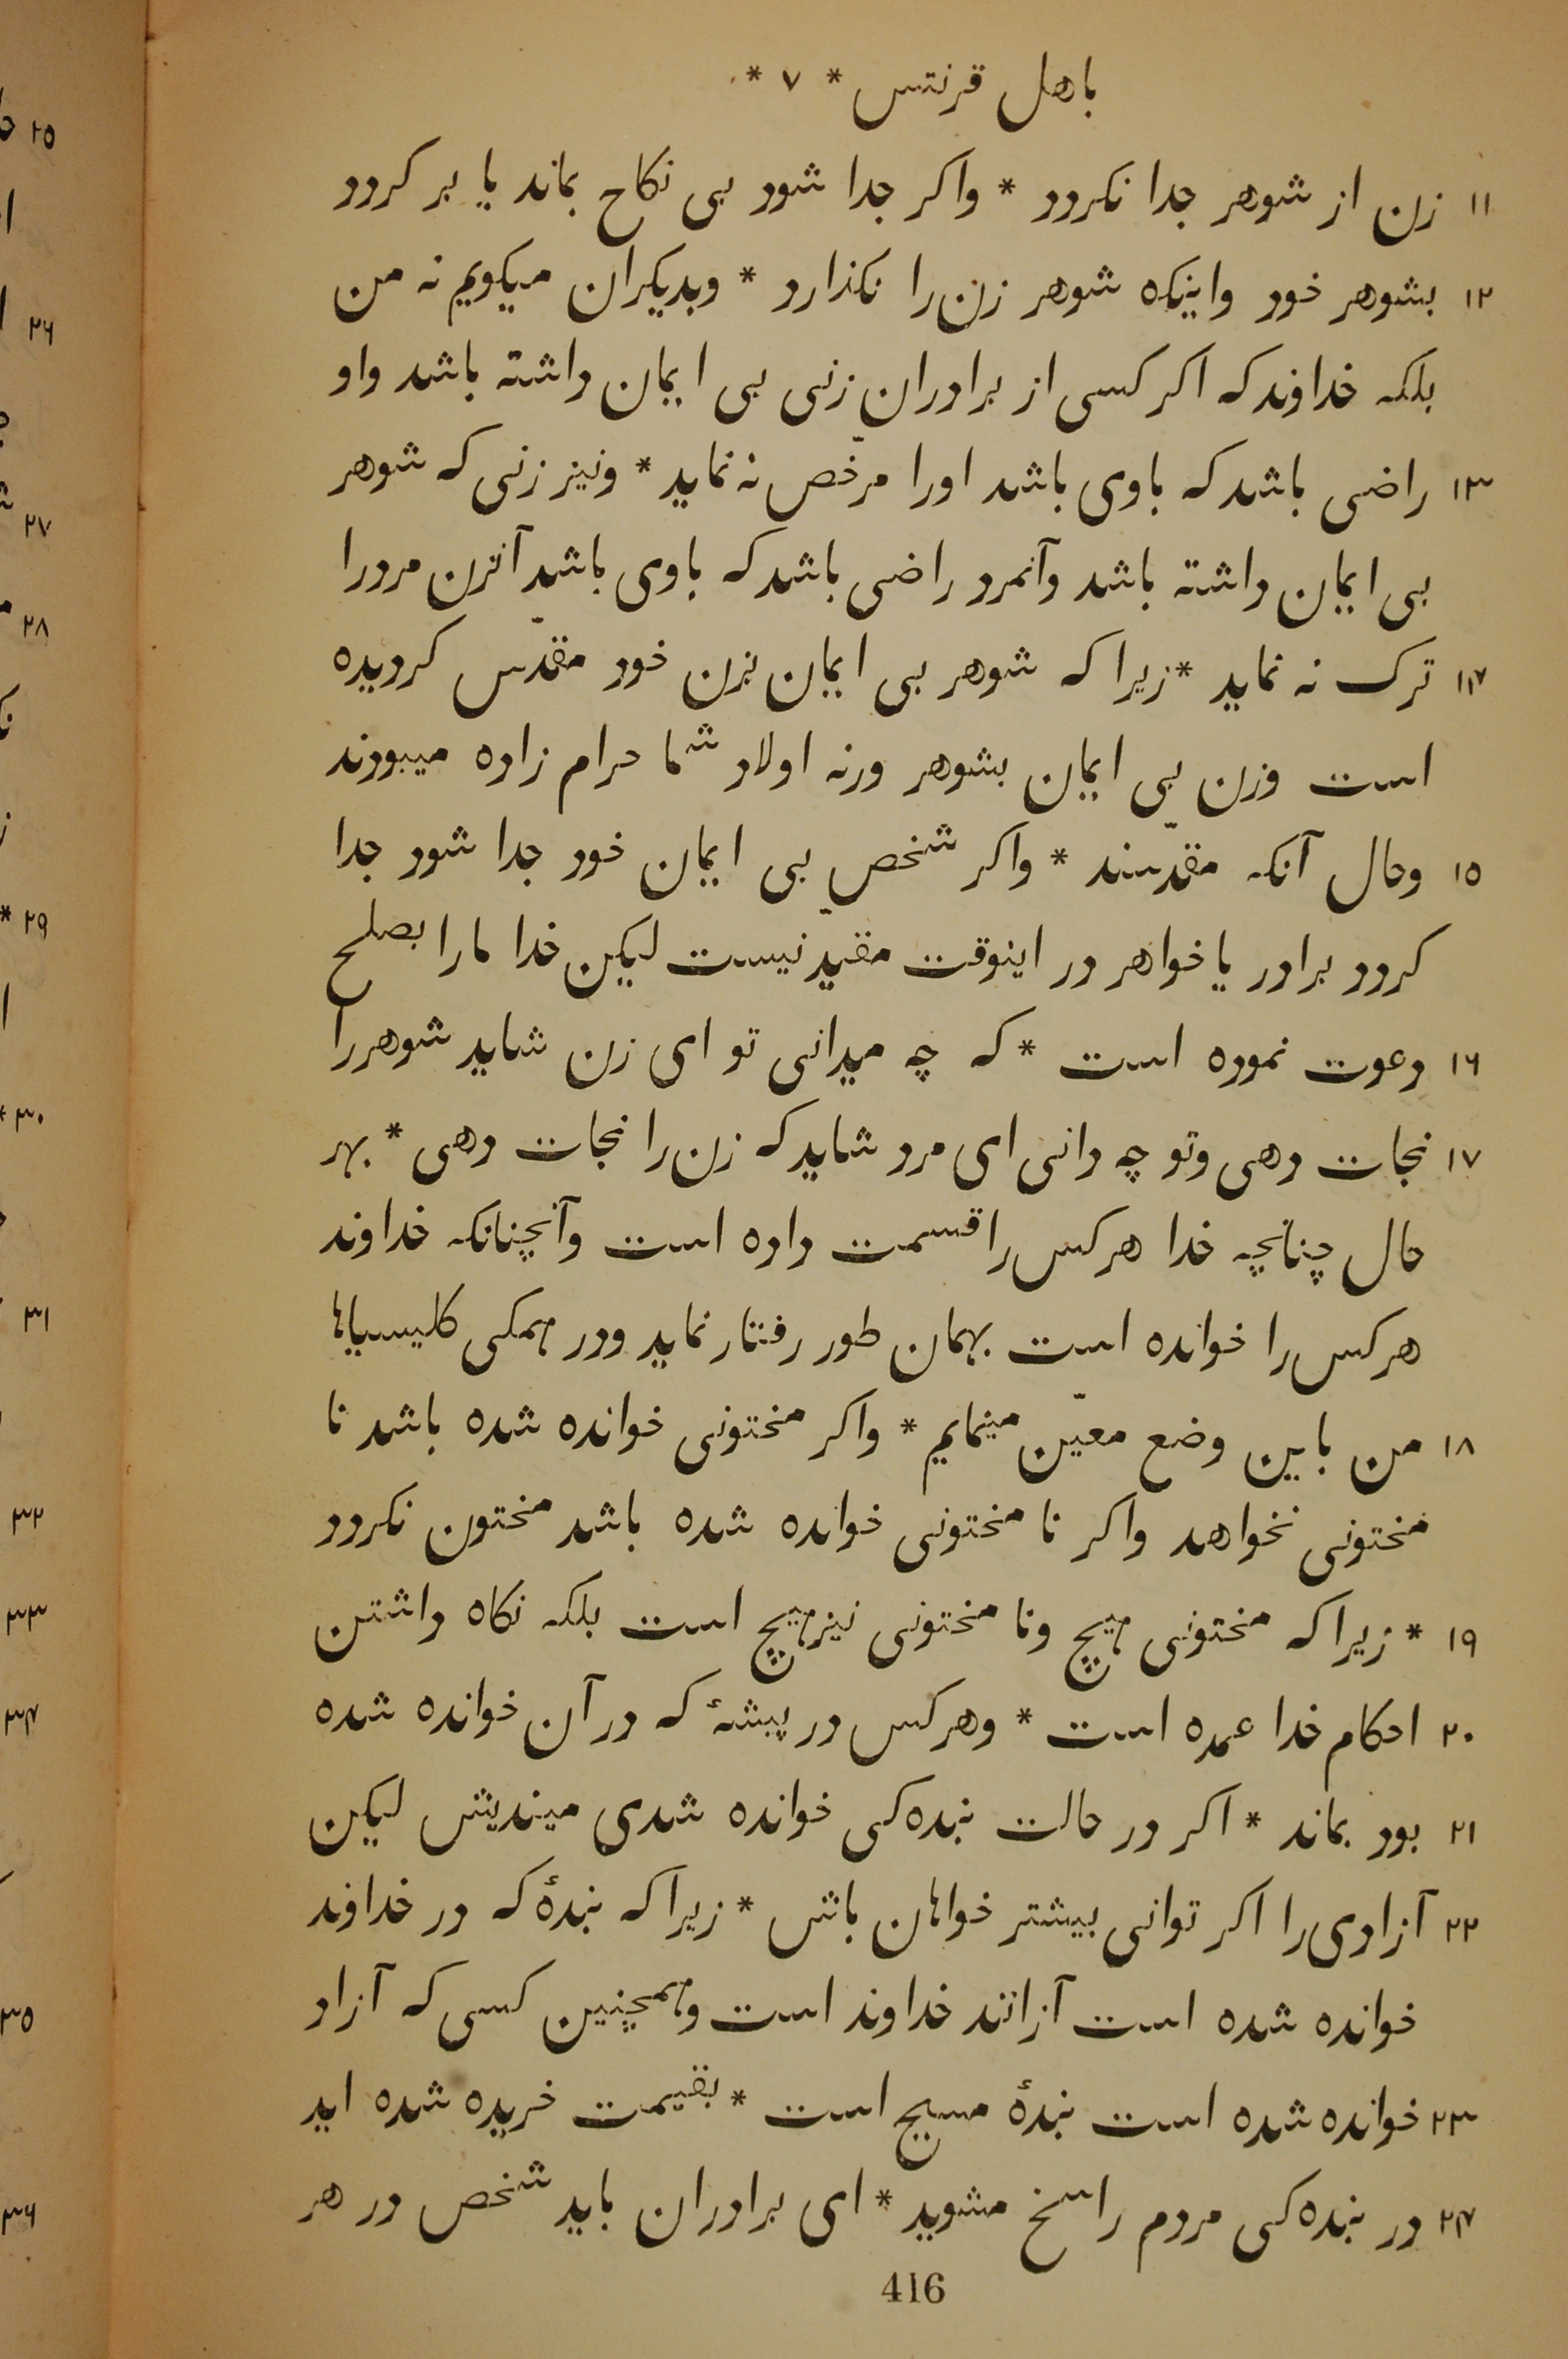 باهل قرنتس * ۷ *
۱۱ زن از شوهر جدا نکردد * واکر جدا شود بی نکاح بماند یا بر کردد
۱۲ بشوهر خود واینکه شوهر زن را نکذارد * وبدیکران میکویم نه من
بلکه خداوند که اکر کسی از برادران زنی بی ایمان داشته باشد واو
۱۳ راضی باشد که باوی باشد اورا مرخّص نه نماید * ونیز زنی که شوهر
بی ایمان داشته باشد وآنمرد راضی باشد که باوی باشد آنزن مردرا
۱۴ ترک نه نماید * زیرا که شوهر بی ایمان بزن خود مقدّس کردیده
است وزن بی ایمان بشوهر ورنه اولاد شما حرام زاده میبودند
۱۵ وحال آنکه مقدّسند * واکر شخص بی ایمان خود جدا شود جدا
کردد برادر یا خواهر در اینوقت مقیّد نیست لیکن خدا مارا بصلح
۱۶ دعوت نموده است * که چه میدانی تو ای زن شاید شوهررا
۱۷ نجات دهی وتو چه دانی ای مرد شاید که زن را نجات دهی * بهر
حال چنانچه خدا هرکس را قسمت داده است وآنچنانکه خداوند
هرکس را خوانده است بهمان طور رفتار نماید ودر همکی کلیسیاها
۱۸ من باین وضع معیّن مینمایم * واکر مختونی خوانده شده باشد نا
مختونی نخواهد واکر نا مختونی خوانده شده باشد مختون نکردد
۱۹ * زیرا که مختونی هیچ ونا مختونی نیز هیچ است بلکه نکاه داشتن
۲۰ احکام خدا عمده است * وهرکس در پیشهٔ که در آن خوانده شده
۲۱ بود بماند * اکر در حالت بنده کی خوانده شدی میندیش لیکن
۲۲ آزادی را اکر توانی بیشتر خواهان باش * زیرا که بندهٔ که در خداوند
خوانده شده است آزانند خداوند است وهمچنین کسی که آزاد
۲۳ خوانده شده است بندهٔ مسیح است * بقیمت خریده شده اید
۲۴ در بنده کی مردم راسخ مشوید * ای برادران باید شخص در هر
416
۲۵
۲۶
۲۷
۲۸
۲۹ *
۳۰ *
۳۱
۳۲
۳۳
۳۴
۳۵
۳۶